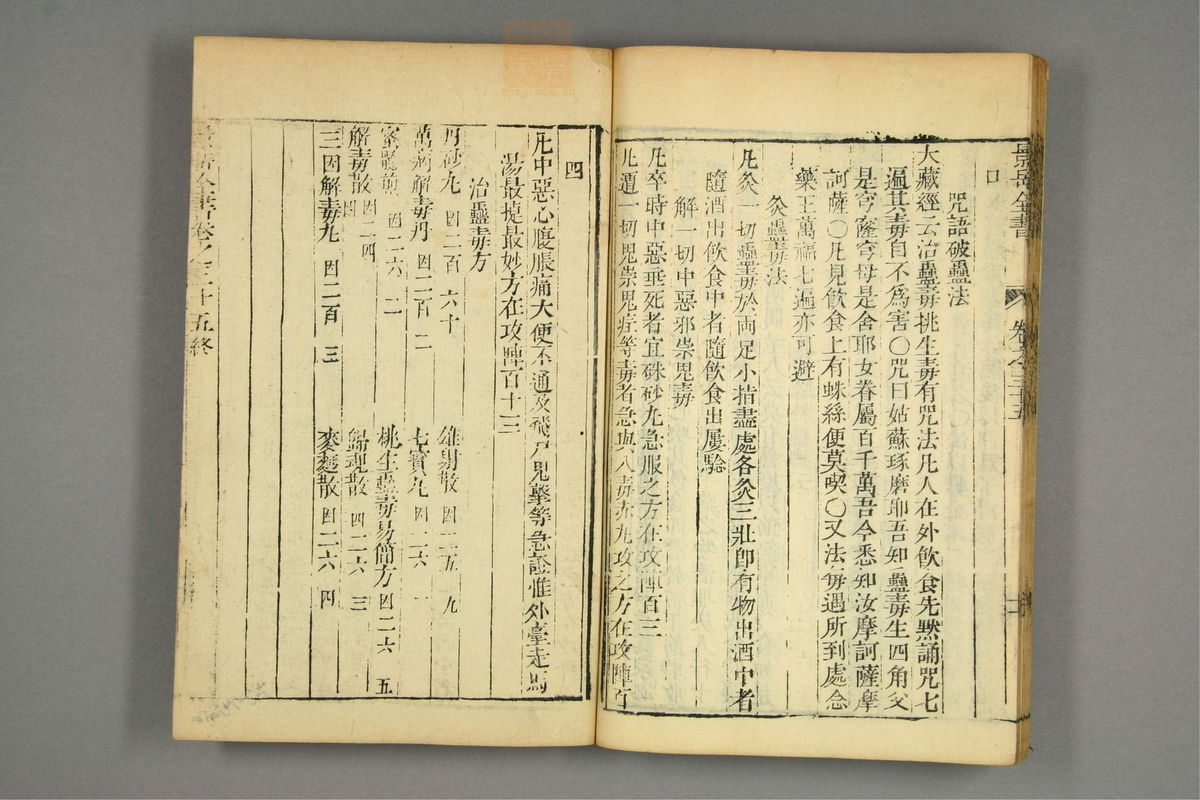 景岳全書 卷之三十五
口
咒語破蠱法
大藏經云治蠱毒挑生毒有咒法凡人在外飲食先默誦咒七
遍其毒自不為害○咒曰姑蘇琢磨耶吾知蠱毒生四角父
是穹窿穹母是舍耶女眷屬百千萬吾今悉知汝摩訶薩摩
訶薩○凡見飲食上有蛛絲便莫喫○又法每遇所到處念
藥王萬福七遍亦可避
灸蠱毒法
凡灸一切蠱毒於兩足小指盡處各灸三壯即有物出酒中者
隨酒出飲食中者隨飲食出屢驗
解一切中惡邪祟鬼毒
凡卒時中惡垂死者宜硃砂丸急服之方在攻陣百三
凡遭一切鬼祟鬼疰等毒者急與八毒赤丸攻之方在攻陣百
四
凡中惡心腹脹痛大便不通及飛尸鬼擊等急證惟外臺走馬
湯最捷最妙方在攻陣百十三
治蠱毒方
丹砂丸 因二百六十
雄射散 因二五九
萬病解毒丹 因二百二
七寶丸 因二六一
蜜髓煎 因二六二
桃生蠱毒易簡方 因二六五
解毒散 因二四四
歸魂散 因二六三
三因解毒丸 因二百三
麥麵散 因二六四
景岳全書卷之三十五終